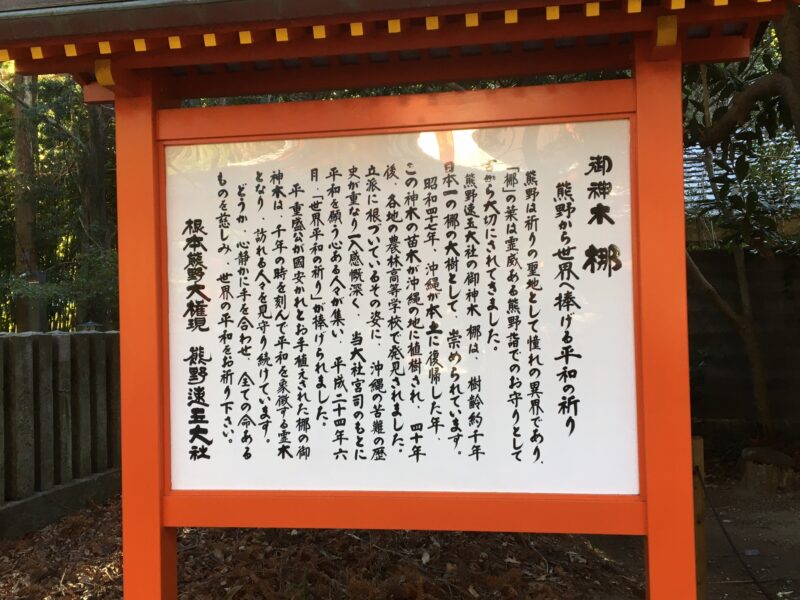 御神木 梛
熊野から世界へ捧げる平和の祈り
熊野は祈りの聖地として憧れの異界であり、
「梛」の葉は霊威ある熊野詣でのお守りとして
から大切にされてきました。
熊野速玉大社の御神木 梛は、樹齢約千年
日本一の梛の大樹として、崇められています。
昭和四七年、沖縄が本土に復帰した年、
この神木の苗木が沖縄の地に植樹され、四十年
後、各地の農林高等学校で発見されました。
立派に根づいているその姿に、沖縄の苦難の歴
史が重なり一入感慨深く、当大社宮司のもとに
平和を願う心ある人々が集い、平成二十四年六
月「世界平和の祈り」が捧げられました。
平重盛公が国安かれとお手植えされた梛の御
神木は、千年の時を刻んで平和を象徴する霊木
となり、訪れる人々を見守り続けています。
どうか、心静かに手を合わせ、全ての命ある
ものを慈しみ、世界の平和をお祈り下さい。
根本熊野大権現 熊野速玉大社